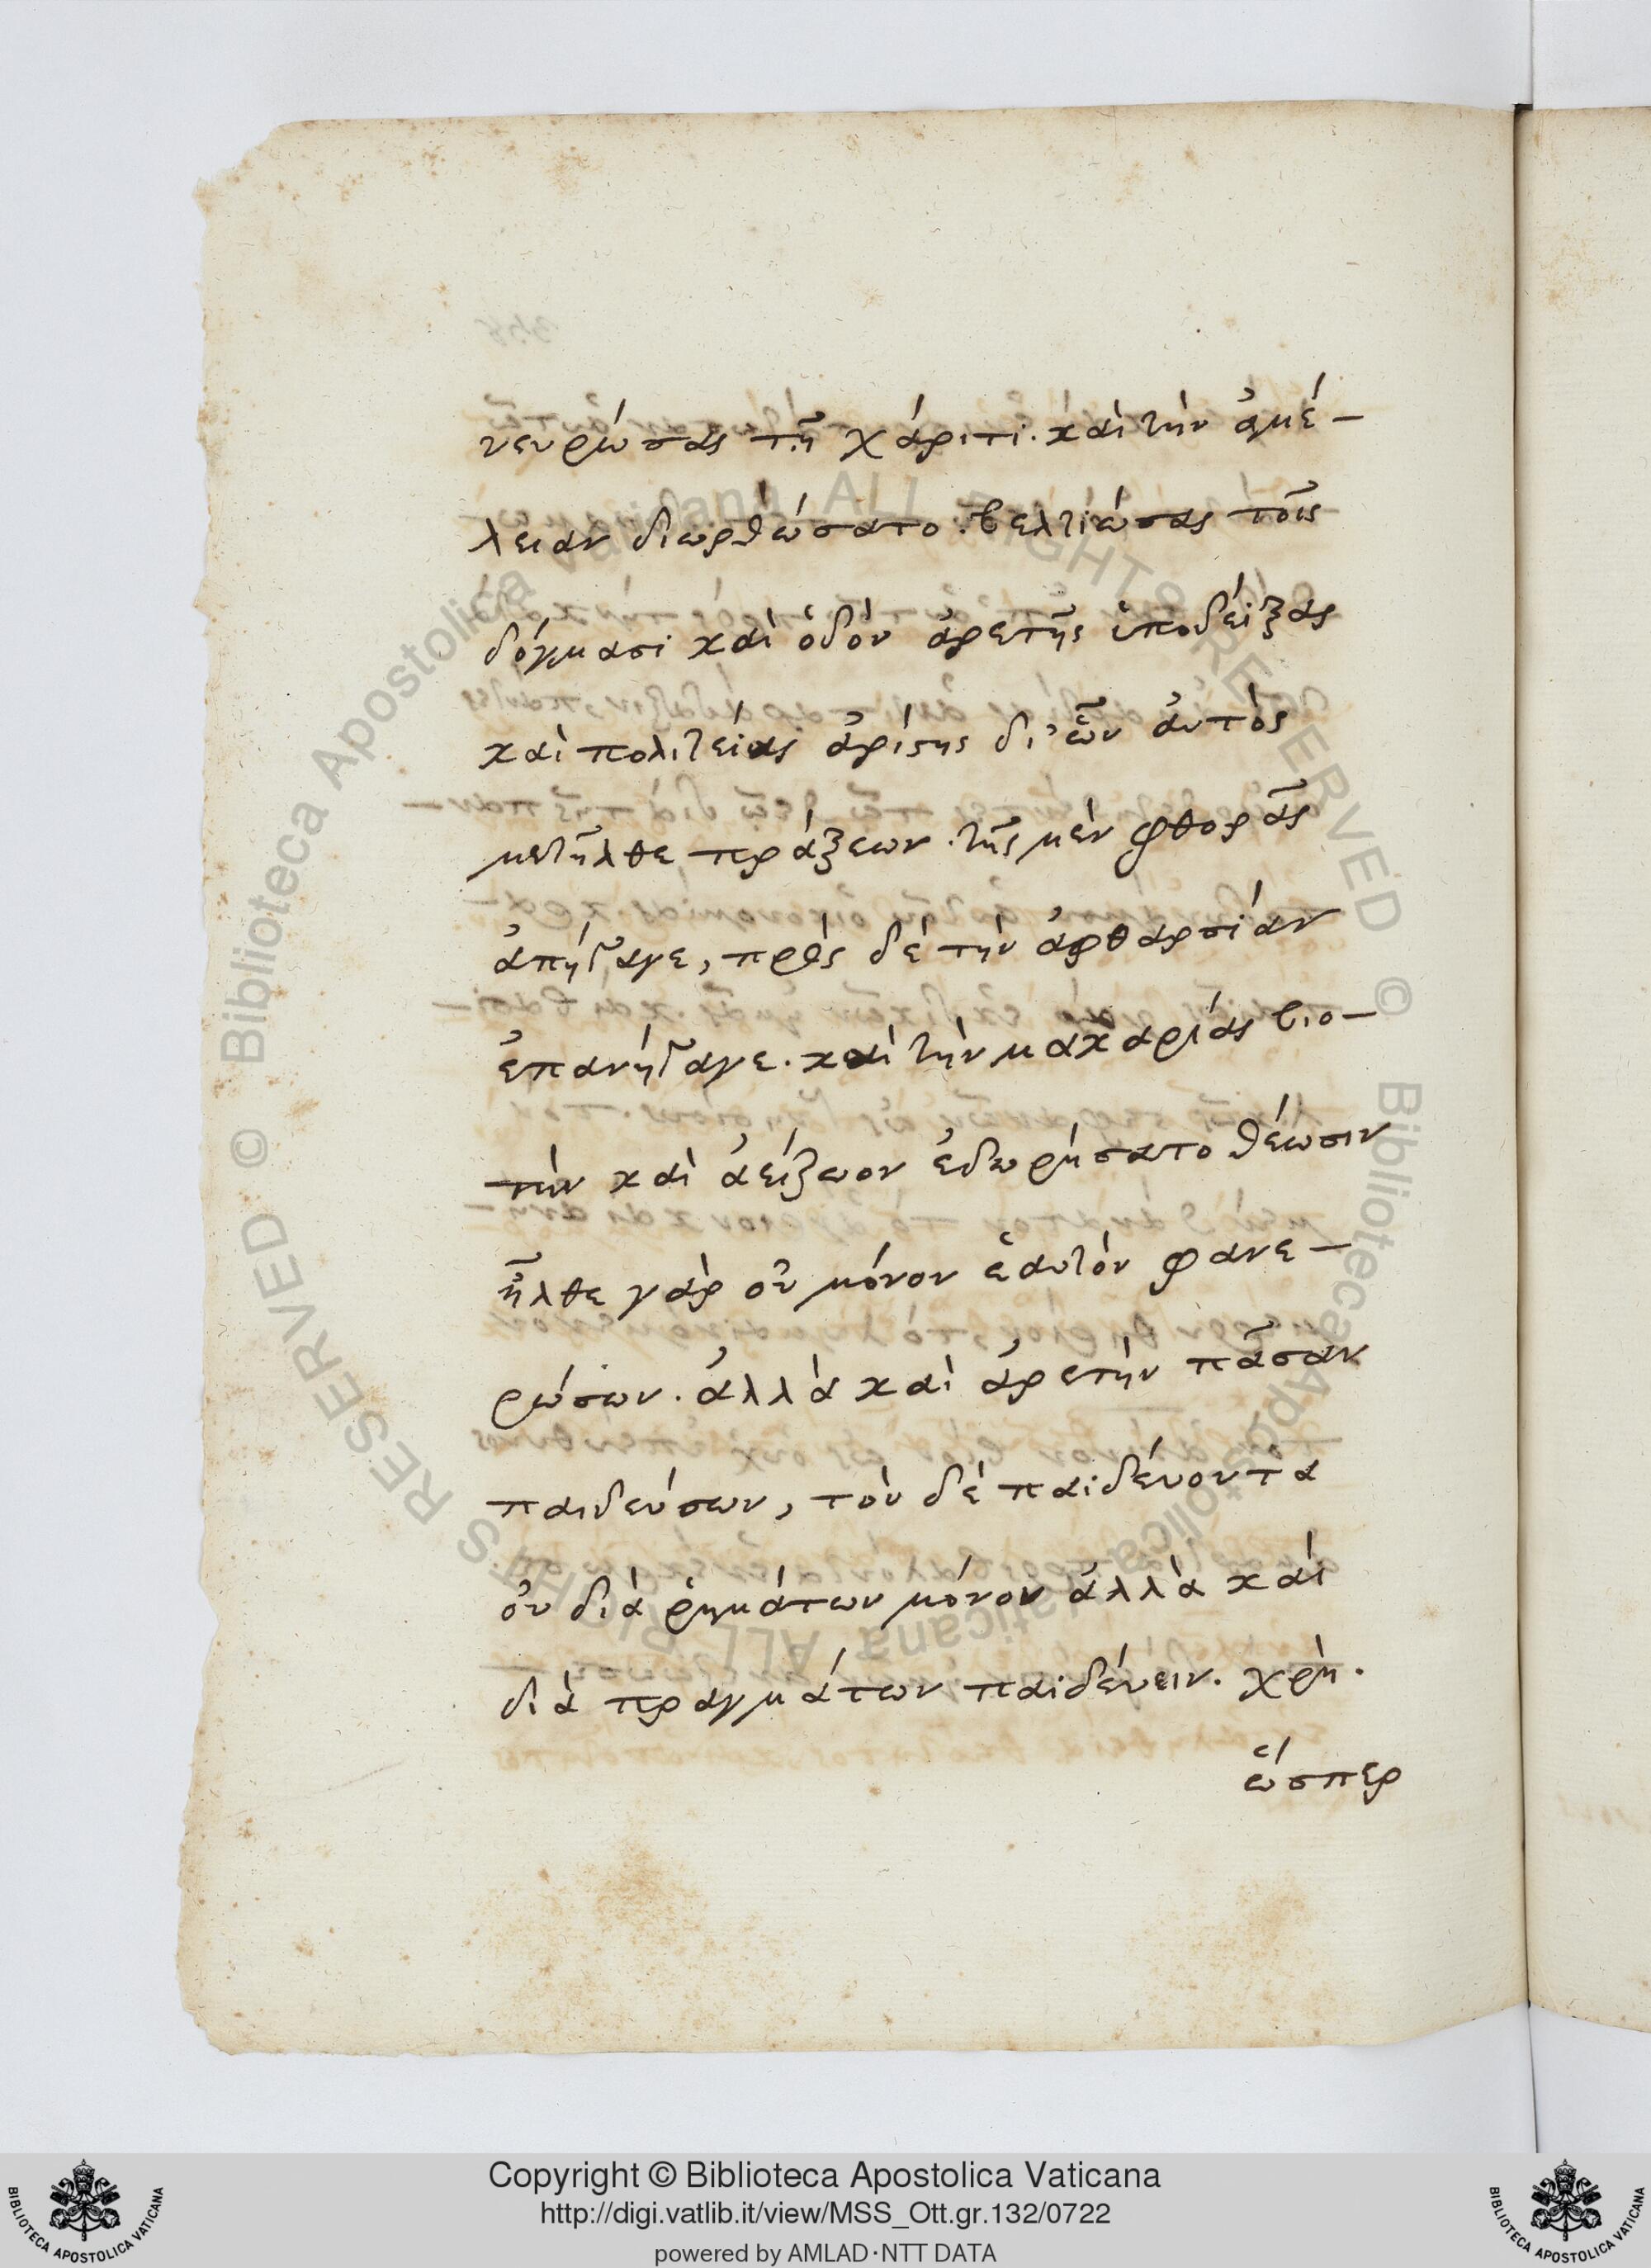 νευρώσας τῇ χάριτι. καὶ τὴν ἀμέ-
λειαν διωρθώσατο. βελτιώσας τοῖς
δόγμασι καὶ ὁδὸν ἀρετῆς ὑποδείξας
καὶ πολιτείας ἀρίστης δι' ὧν ἀυτὸς
μετῆλθε πράξεων. τῆς μὲν φθορᾶς
ἀπήγαγε, πρὸς δὲ τὴν ἀφθαρσίαν
ἐπανήγαγε. καὶ τὴν μακαρίας βιο-
τὴν καὶ ἀείζωον ἐδωρήσατο θέωσιν
ἦλθε γὰρ οὐ μόνον ἑαυτὸν φανε-
ρώσων. ἀλλὰ καὶ ἀρετὴν πᾶσαν
παιδεύσων, τὸν δὲ παιδέυοντα
ὀυ διὰ ῥημάτων μόνον ἀλλὰ καὶ
διὰ πραγμάτων παιδέυειν. χρὴ.
ὥσπερ
Copyright © Biblioteca Apostolica Vaticana
http://digi.vatlib.it/view/MSS_Ott.gr.132/0722
powered by AMLAD·NTT DATA
BIBLIOTECA APOSTOLICA VATICANA
BIBLIOTECA APOSTOLICA VATICANA
© Biblioteca Apostolica Vaticana ALL RIGHTS RESERVED
© Biblioteca Apostolica Vaticana ALL RIGHTS RESERVED